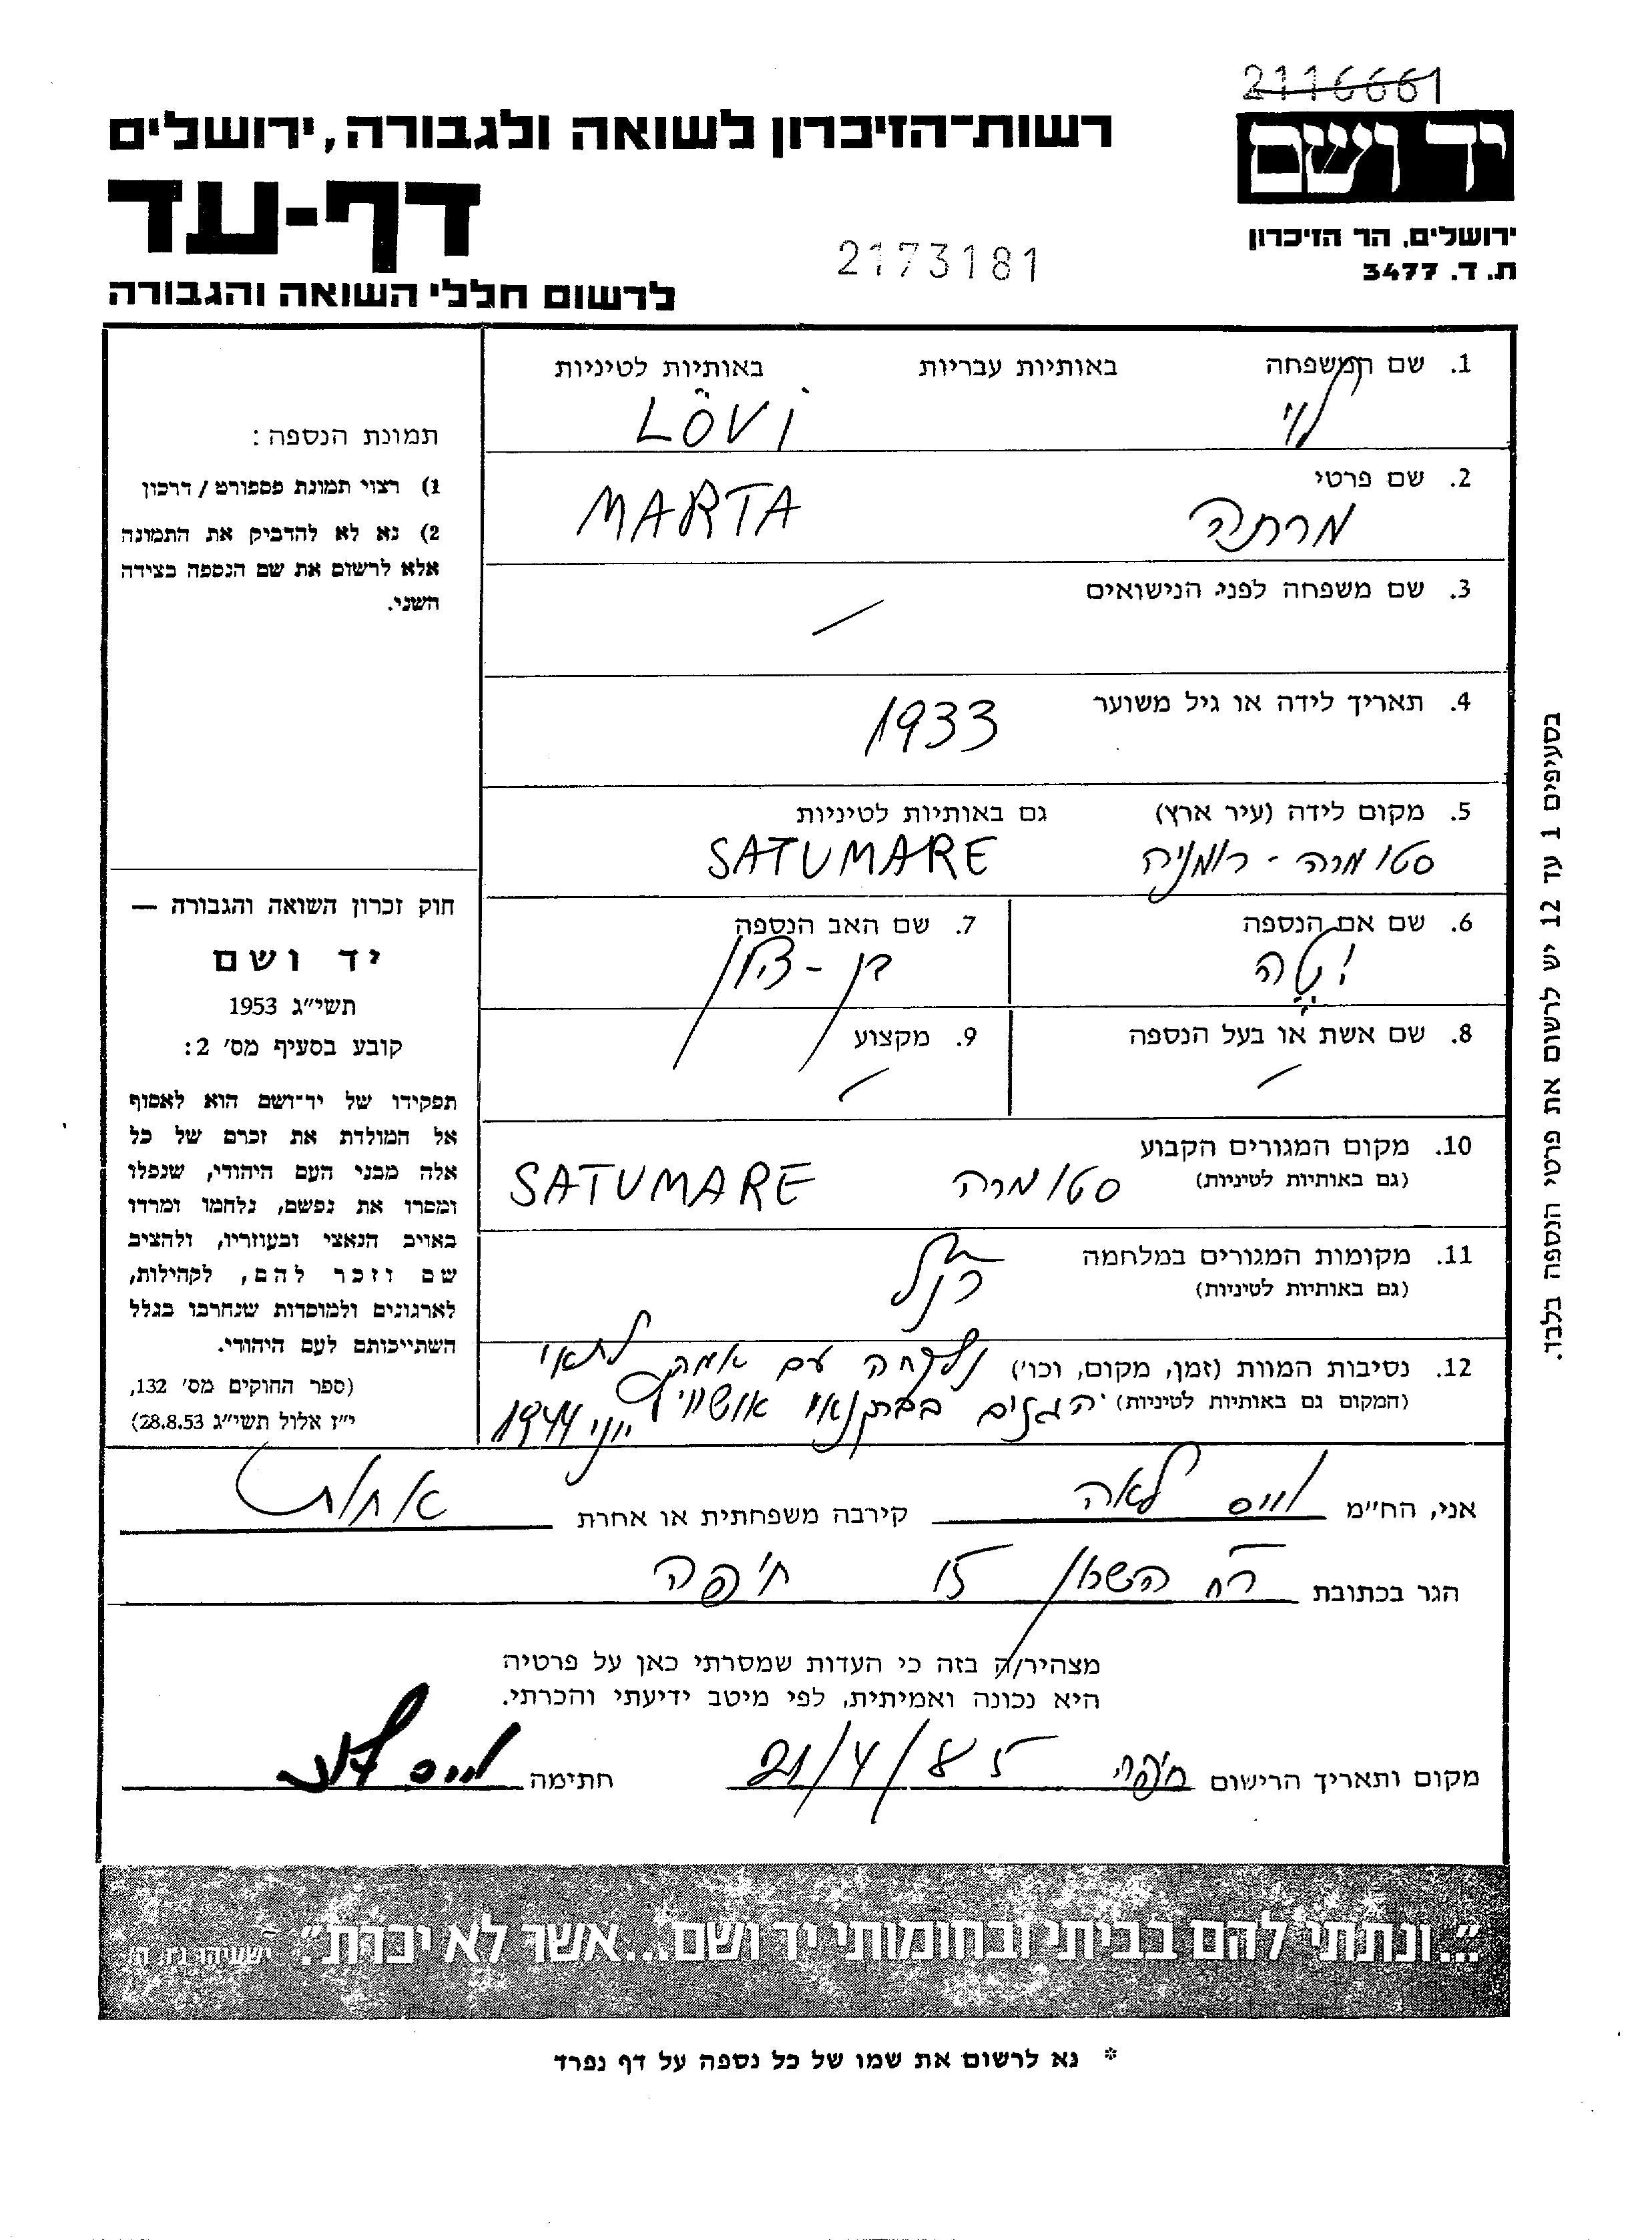 2116661
יד ושם
ירושלים, הר הזיכרון
ת. ד. 3477
רשות־הזיכרון לשואה ולגבורה, ירושלים
דף-עד
2173181
לרשום חללי השואה והגבורה
1. שם המשפחה באותיות עבריות באותיות לטיניות
לוי LÖVI
2. שם פרטי
מרתה MARTA
3. שם משפחה לפני הנישואים
4. תאריך לידה או גיל משוער
1933
5. מקום לידה (עיר ארץ) גם באותיות לטיניות
סטו מרה - רומניה SATUMARE
6. שם אם הנספה 7. שם האב הנספה
יטה בן-ציון
8. שם אשת או בעל הנספה 9. מקצוע
10. מקום המגורים הקבוע
(גם באותיות לטיניות)
סטו מרה SATUMARE
11. מקומות המגורים במלחמה
(גם באותיות לטיניות)
כנ"ל
12. נסיבות המוות (זמן, מקום, וכו') נלקחה עם אמה לתאי
(המקום גם באותיות לטיניות) הגזים בבירקנאו אושוויץ יוני 1944
תמונת הנספה:
1) רצוי תמונת פספורט / דרכון
2) נא לא להדביק את התמונה
אלא לרשום את שם הנספה בצידה
השני.
חוק זכרון השואה והגבורה —
יד ושם
תשי״ג 1953
קובע בסעיף מס׳ 2:
תפקידו של יד־ושם הוא לאסוף
אל המולדת את זכרם של כל
אלה מבני העם היהודי, שנפלו
ומסרו את נפשם, נלחמו ומרדו
באויב הנאצי ובעוזריו, ולהציב
שם וזכר להם, לקהילות,
לארגונים ולמוסדות שנחרבו בגלל
השתייכותם לעם היהודי.
(ספר החוקים מס׳ 132,
י״ז אלול תשי״ג 28.8.53)
בסעיפים 1 עד 12 יש לרשום את פרטי הנספה בלבד.
אני, הח״מ וייס לאה קירבה משפחתית או אחרת אחות
הגר בכתובת רח השאן 15 חיפה
מצהיר/ה בזה כי העדות שמסרתי כאן על פרטיה
היא נכונה ואמיתית, לפי מיטב ידיעתי והכרתי.
מקום ותאריך הרישום חיפה 21/4/85 חתימה וייס
״...ונתתי להם בביתי ובחומותי יד ושם...אשר לא יכרת״. ישעיהו נו, ה׳
* נא לרשום את שמו של כל נספה על דף נפרד